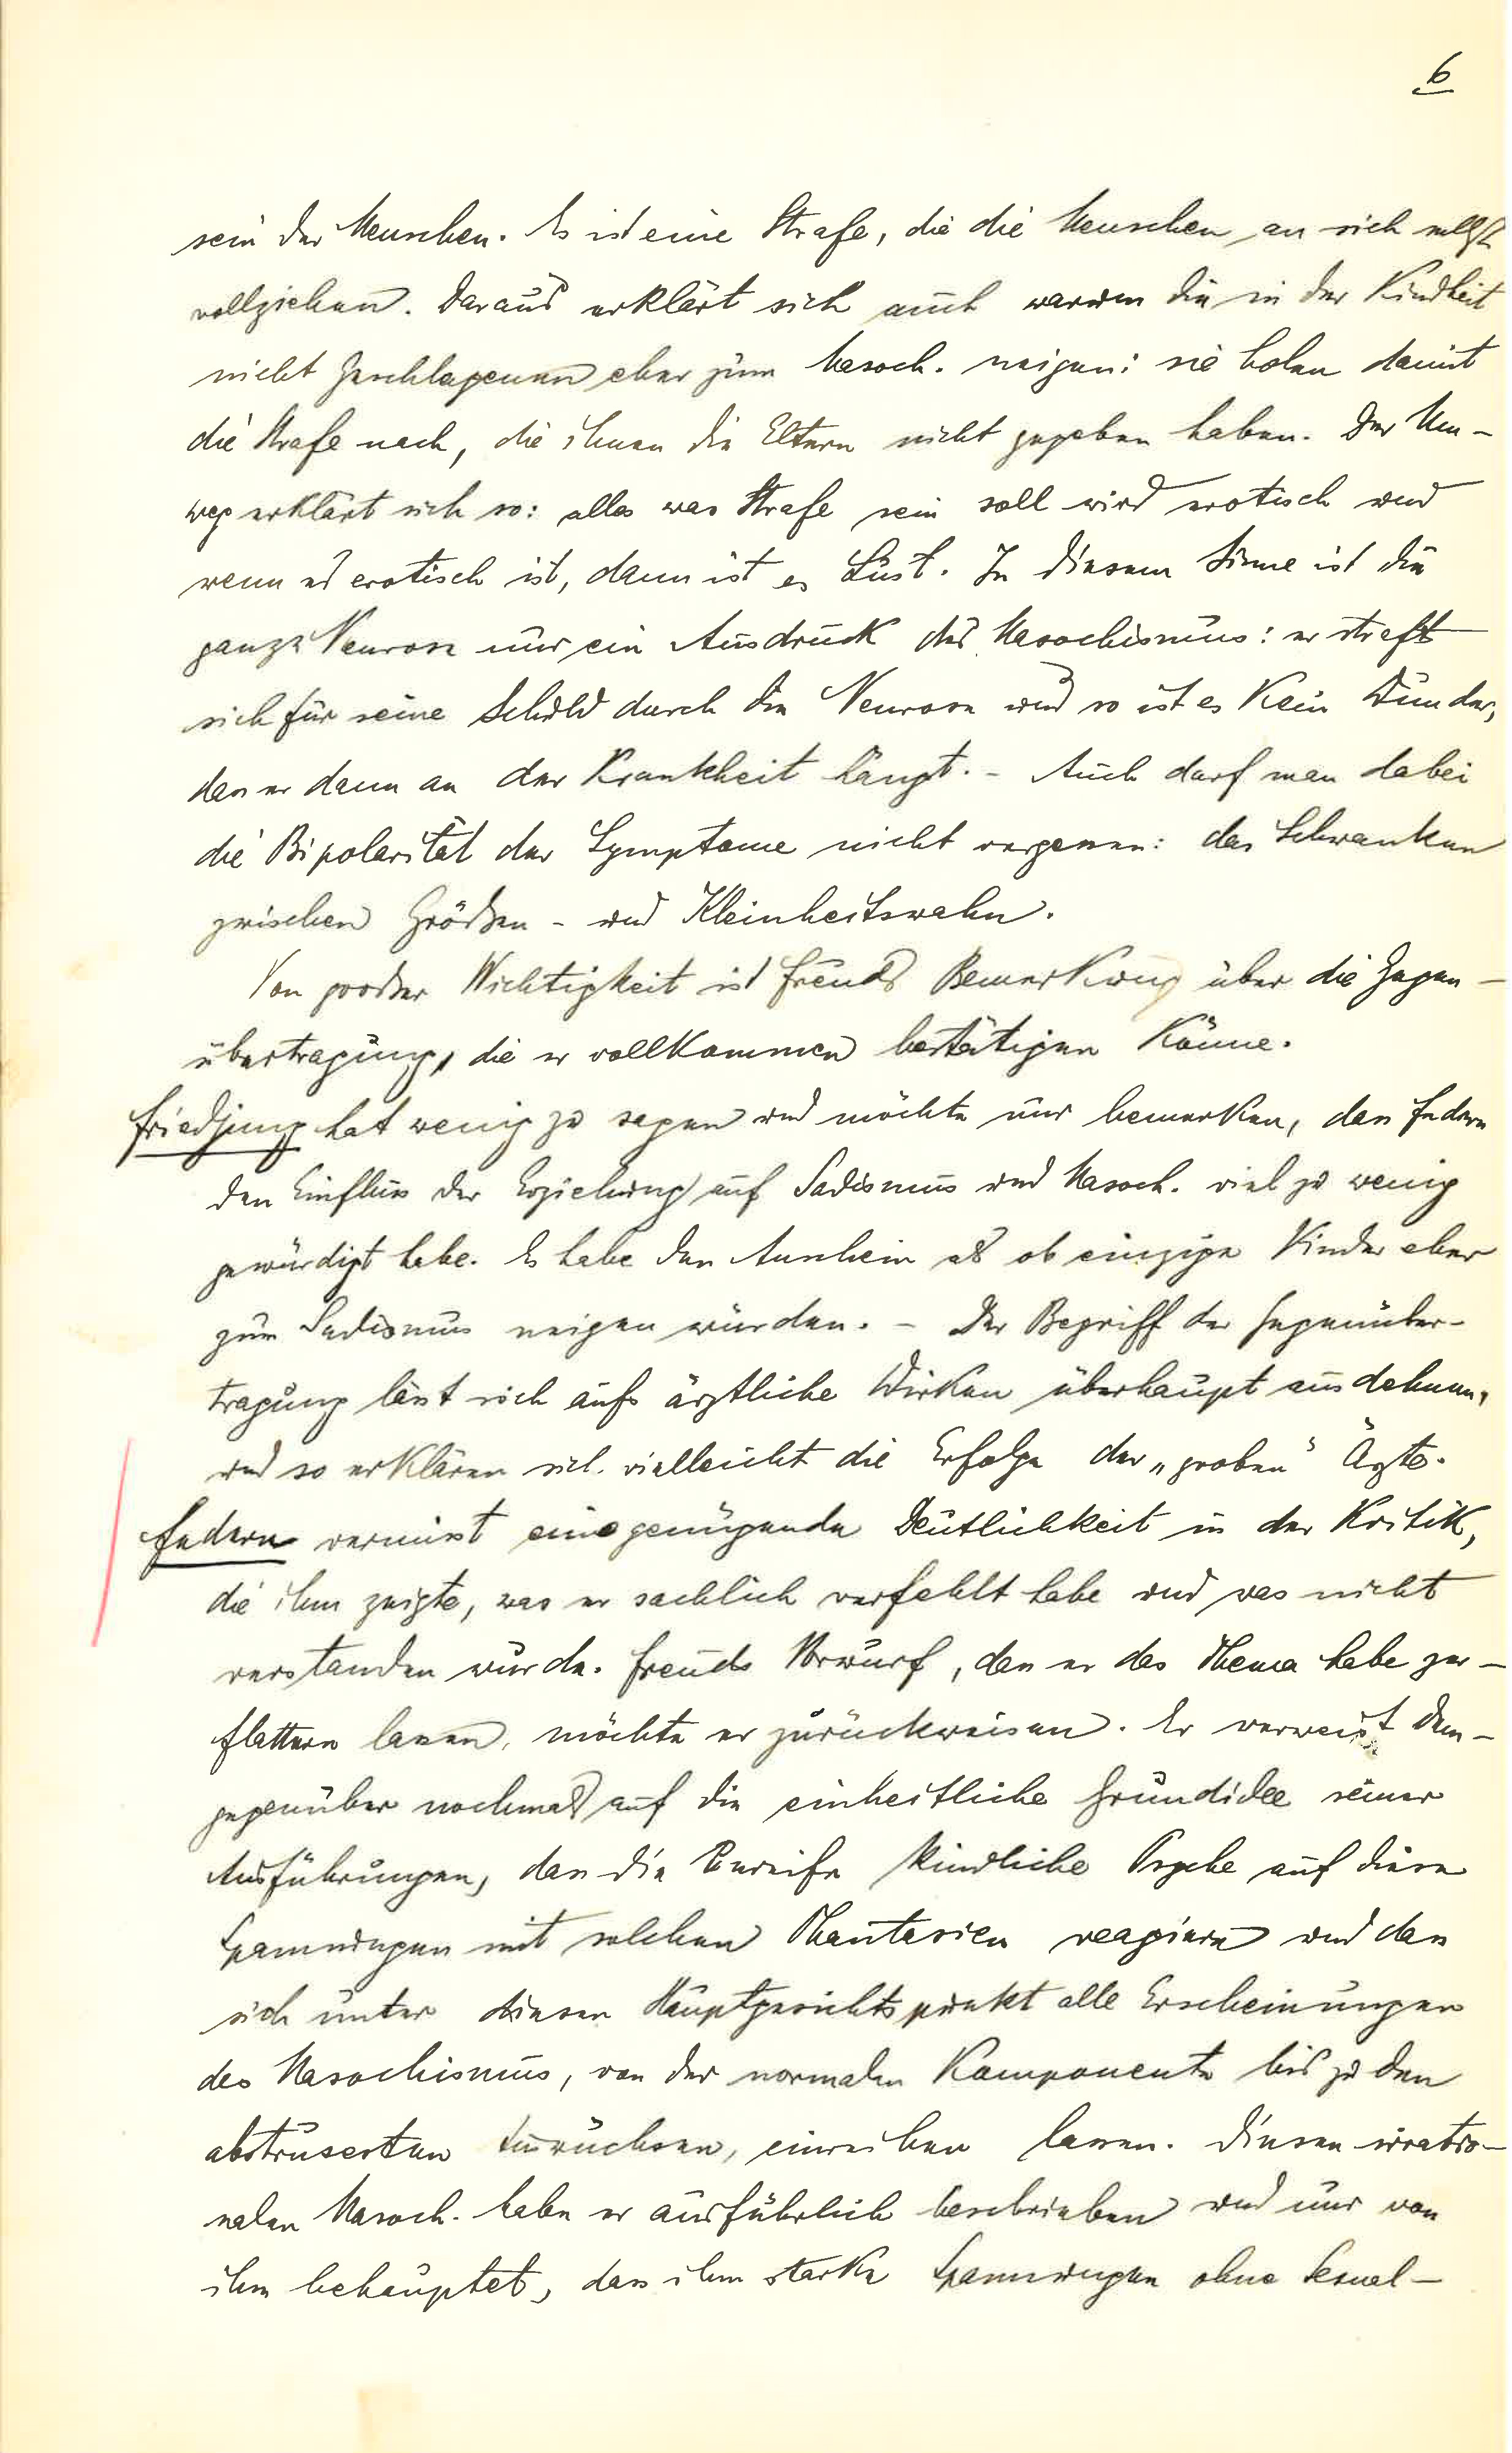 6
sein der Menschen. Es ist eine Strafe, die die Menschen an sich selbst
vollziehen. Daraus erklärt sich auch warum die in der Kindheit
nicht Geschlagenen eher zum Masoch. neigen: sie holen damit
die Strafe nach, die ihnen die Eltern nicht gegeben haben. Der Um-
weg erklärt sich so: alles was Strafe sein soll wird erotisch und
wenn es erotisch ist, dann ist es Lust. In diesem Sinne ist die
ganze Neurose nur ein Ausdruck des Masochismus: er straft
sich für seine Schuld durch die Neurose und so ist es kein Wunder,
dass er dann an der Krankheit hängt. - Auch darf man dabei
die Bipolarität der Symptome nicht vergessen: das Schwanken
zwischen Größen- und Kleinheitswahn.
Von großer Wichtigkeit ist Freuds Bemerkung über die Gegen-
übertragung, die er vollkommen bestätigen könne.
Friedjung hat wenig zu sagen und möchte nur bemerken, dass Federn
den Einfluss der Erziehung auf Sadismus und Masoch. viel zu wenig
gewürdigt habe. Es habe den Anschein als ob einzige Kinder eher
zum Sadismus neigen würden. - Der Begriff der Gegenüber-
tragung lässt sich aufs ärztliche Wirken überhaupt ausdehnen,
und so erklären sich vielleicht die Erfolge der „groben“ Ärzte.
Federn vermisst eine genügende Deutlichkeit in der Kritik,
die ihm zeigte, was er sachlich verfehlt habe und was nicht
verstanden wurde. Freuds Vorwurf, dass er das Thema habe zer-
flattern lassen, möchte er zurückweisen. Er verweist dem-
gegenüber nochmals auf die einheitliche Grundidee seiner
Ausführungen, dass die unreife kindliche Psyche auf diese
Spannungen mit solchen Phantasien reagiere und dass
sich unter diesen Hauptgesichtspunkt alle Erscheinungen
des Masochismus, von der normalen Komponente bis zu den
abstrusesten Auswüchsen, einreihen lassen. Diesen irratio-
nalen Masoch. habe er ausführlich beschrieben und nur von
ihm behauptet, dass ihm starke Spannungen ohne Sexual-